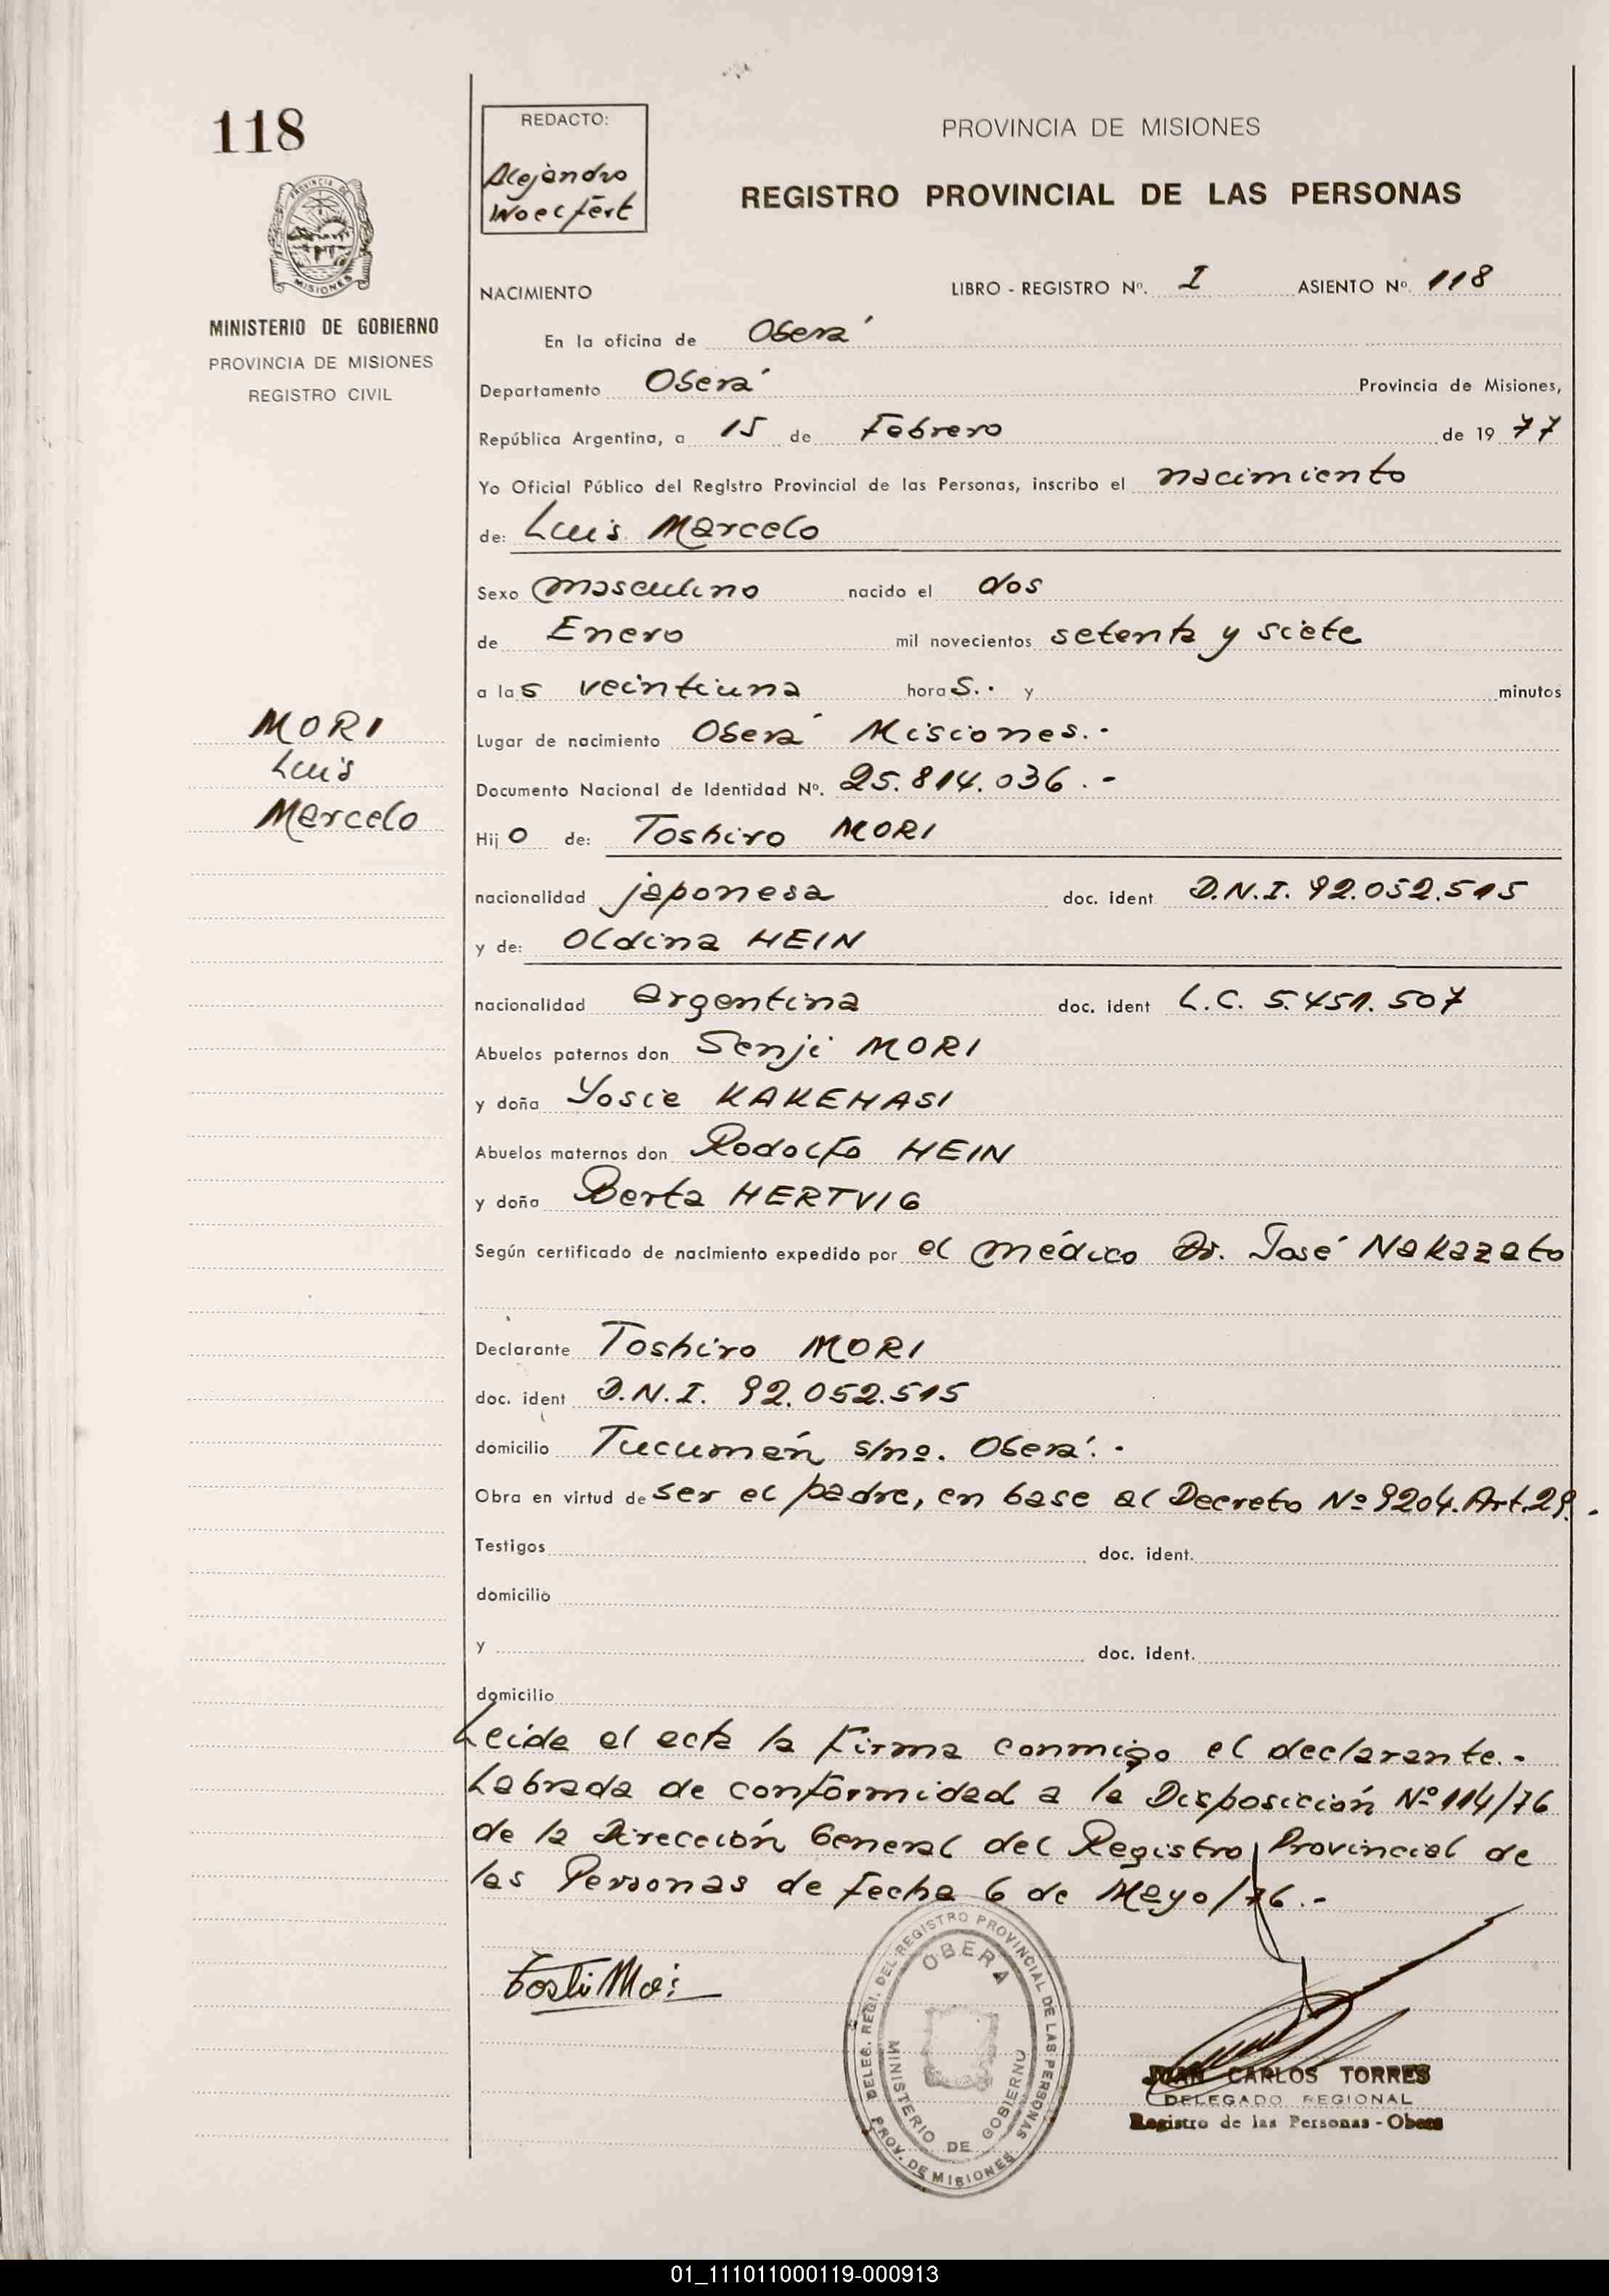 118
PROVINCIA DE
MISIONES
MINISTERIO DE GOBIERNO
PROVINCIA DE MISIONES
REGISTRO CIVIL
MORI
Luis
Marcelo
REDACTO:
Alejandro
Woelfert
PROVINCIA DE MISIONES
REGISTRO PROVINCIAL DE LAS PERSONAS
NACIMIENTO LIBRO - REGISTRO Nº. I ASIENTO Nº. 118
En la oficina de Oberá
Departamento Oberá Provincia de Misiones,
República Argentina, a 15 de Febrero de 19 77
Yo Oficial Público del Registro Provincial de las Personas, inscribo el nacimiento
de: Luis Marcelo
Sexo masculino nacido el dos
de Enero mil novecientos setenta y siete
a las veintiuna horas.- y minutos
Lugar de nacimiento Oberá Misiones.-
Documento Nacional de Identidad Nº. 25.814.036.-
Hijo de: Toshiro MORI
nacionalidad japonesa doc. ident D.N.I. 92.052.515
y de: Oldina HEIN
nacionalidad argentina doc. ident L.C. 5.451.507
Abuelos paternos don Senji MORI
y doña Yosie KAKEHASI
Abuelos maternos don Rodolfo HEIN
y doña Berta HERTVIG
Según certificado de nacimiento expedido por el médico Dr. José Nakazato
Declarante Toshiro MORI
doc. ident D.N.I. 92.052.515
domicilio Tucumán s/nº. Oberá.-
Obra en virtud de ser el padre, en base al Decreto Nº 9204. Art. 29.-
Testigos doc. ident.
domicilio
y doc. ident.
domicilio
Leida el acta la firma conmigo el declarante.-
Labrada de conformidad a la Disposición Nº 114/76
de la Dirección General del Registro Provincial de
las Personas de fecha 6 de Mayo/76.-
DELEG. REGI. DEL REGISTRO PROVINCIAL DE LAS PERSONAS
OBERA
MINISTERIO DE GOBIERNO
PROV. DE MISIONES
JUAN CARLOS TORRES
DELEGADO REGIONAL
Registro de las Personas - Obera
01_111011000119-000913